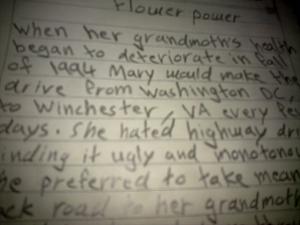 Flower power
When her grandmoth's health
began to deteriorate in fall
of 1994 Mary would make the
drive from Washington DC,
to Winchester, VA every few
days. She hated highway dr
inding it ugly and monotonou
he preferred to take mean
ck road to her grandmoth